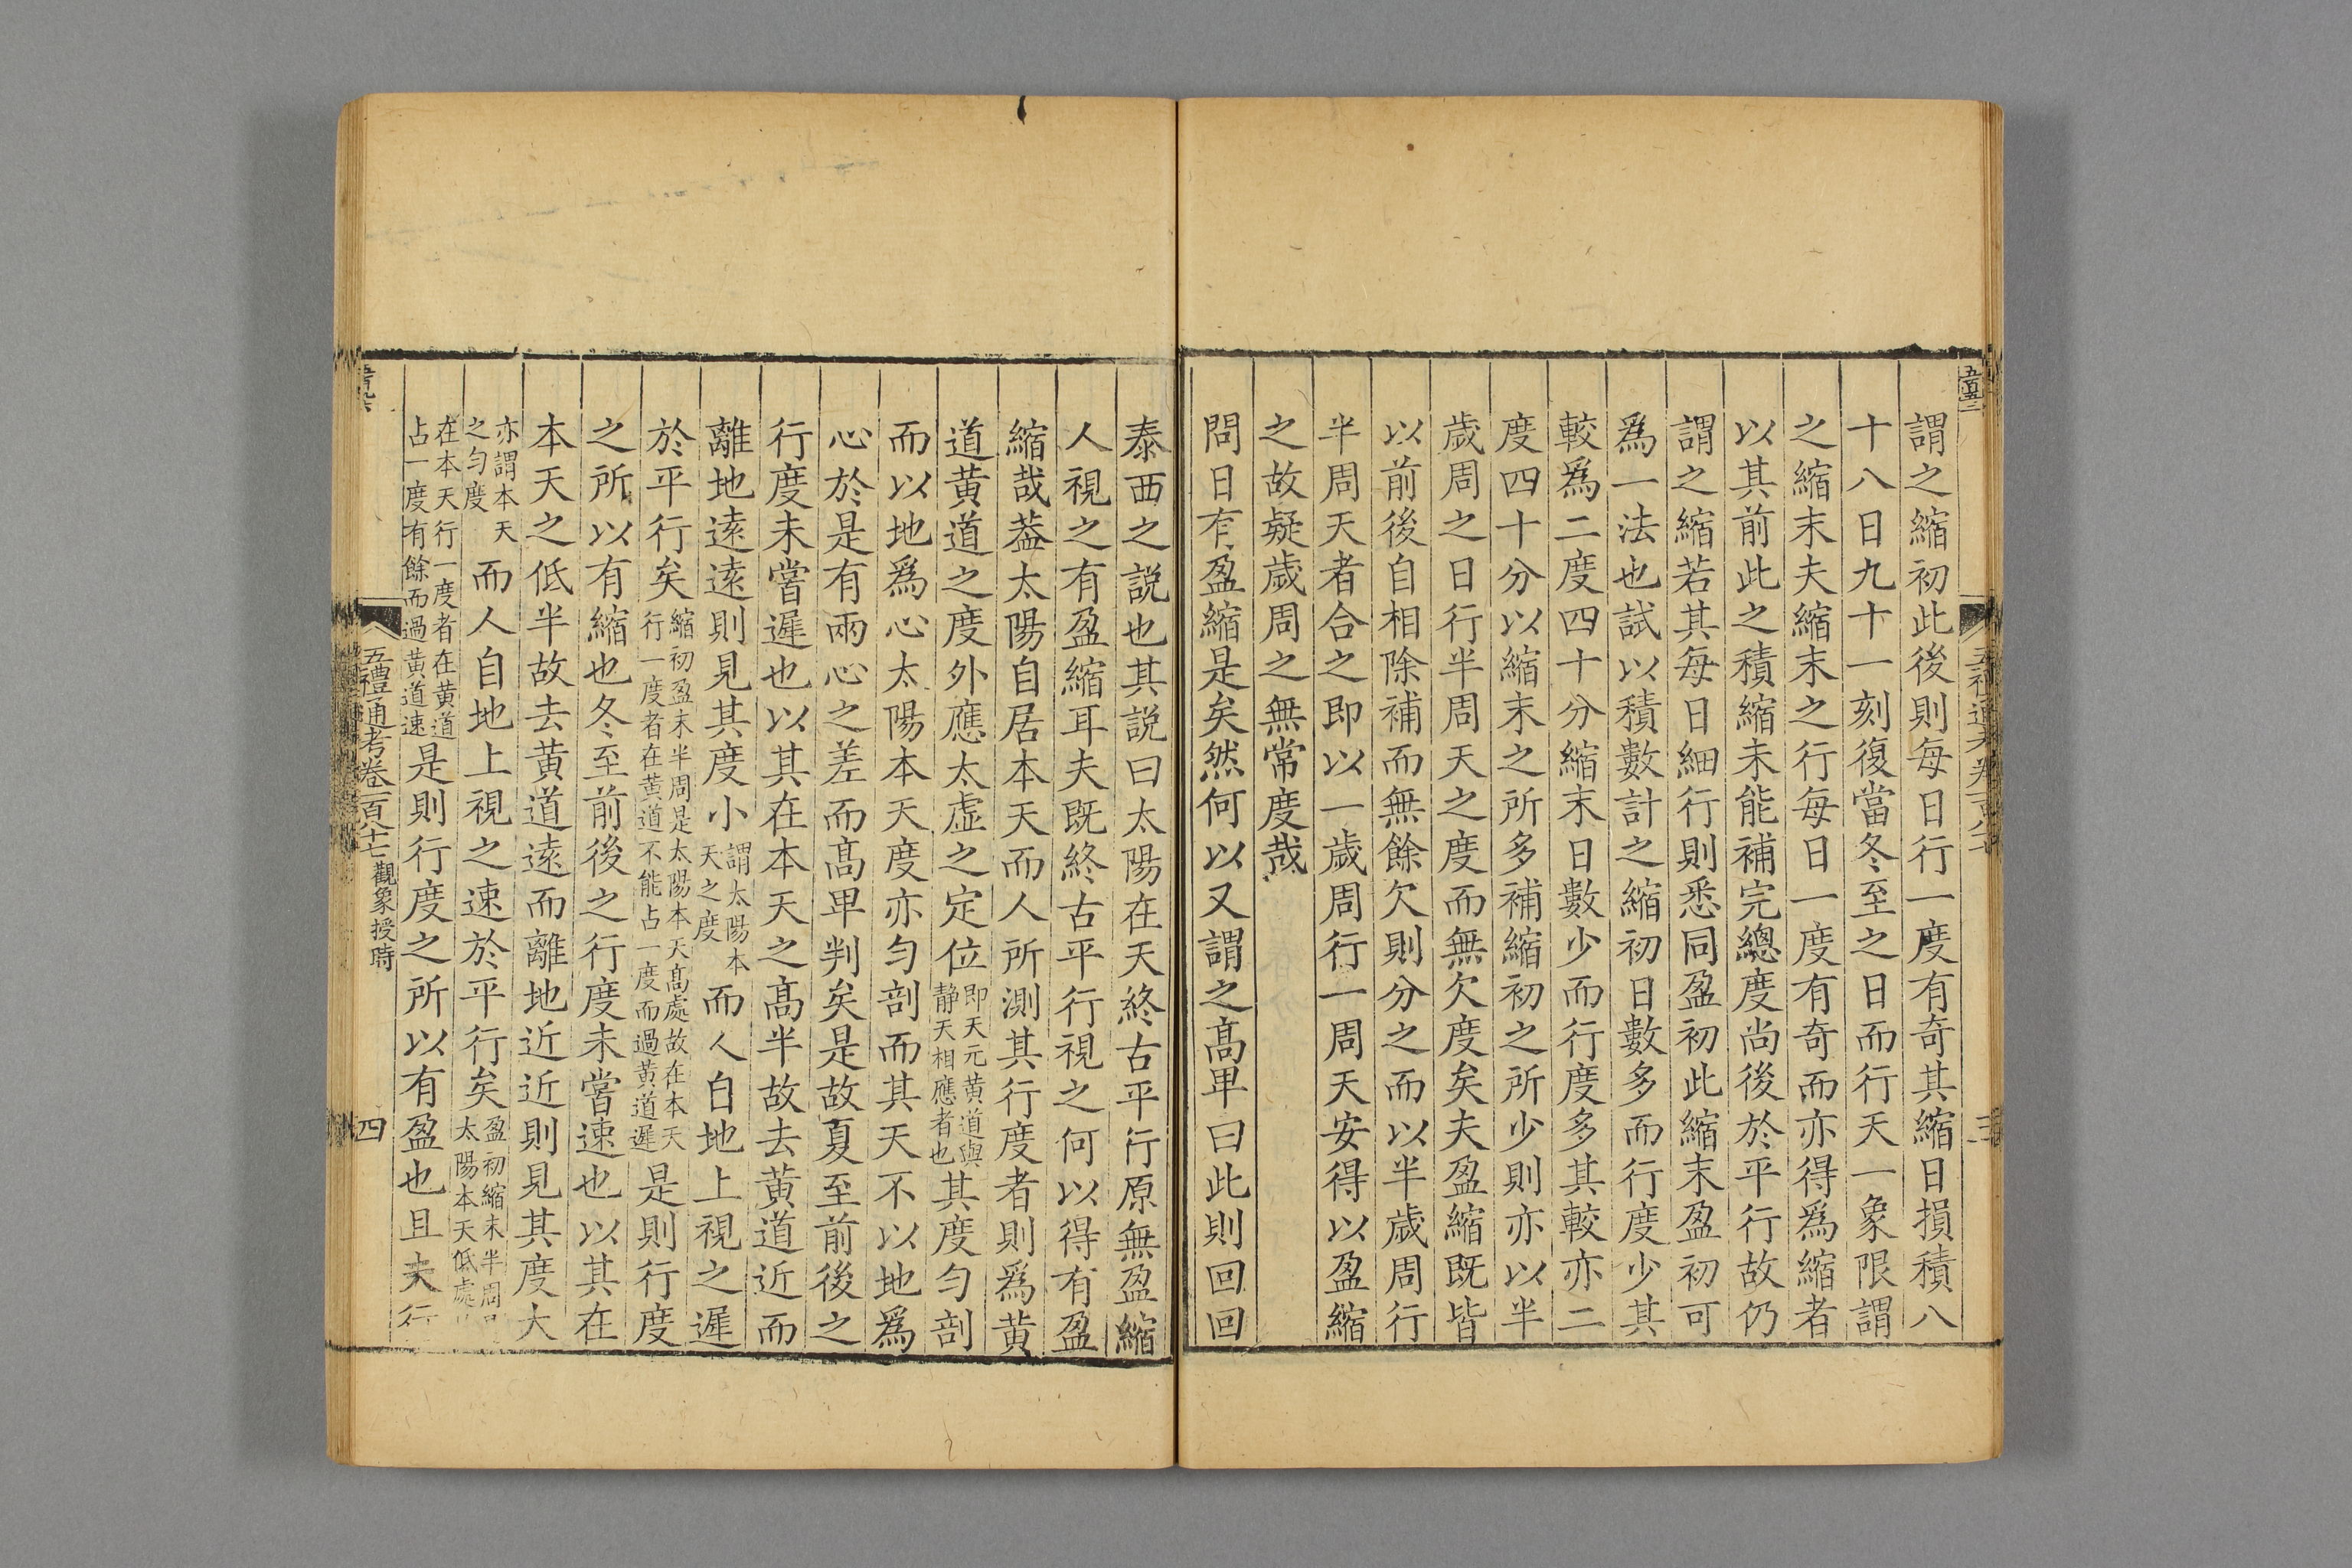 謂之縮初此後則每日行一度有奇其縮日損積八
十八日九十一刻復當冬至之日而行天一象限謂
之縮末夫縮末之行每日一度有奇而亦得爲縮者
以其前此之積縮未能補完總度尚後於平行故仍
謂之縮若其每日細行則悉同盈初此縮末盈初可
爲一法也試以積數計之縮初日數多而行度少其
較爲二度四十分縮末日數少而行度多其較亦二
度四十分以縮末之所多補縮初之所少則亦以半
歲周之日行半周天之度而無欠度矣夫盈縮既皆
以前後自相除補而無餘欠則分之而以半歲周行
半周天者合之即以一歲周行一周天安得以盈縮
之故疑歲周之無常度哉
問日有盈縮是矣然何以又謂之髙卑曰此則回回
泰西之説也其説曰太陽在天終古平行原無盈縮
人視之有盈縮耳夫既終古平行視之何以得有盈
縮哉葢太陽自居本天而人所測其行度者則爲黄
道黄道之度外應太虛之定位即天元黄道與静天相應者也其度勻剖
而以地爲心太陽本天度亦勻剖而其天不以地爲
心於是有兩心之差而髙卑判矣是故夏至前後之
行度未嘗遲也以其在本天之髙半故去黄道近而
離地遠遠則見其度小謂太陽本天之度而人自地上視之遲
於平行矣縮初盈末半周是太陽本天髙處故在本天行一度者在黄道不能占一度而過黄道遲是則行度
之所以有縮也冬至前後之行度未嘗速也以其在
本天之低半故去黄道遠而離地近近則見其度大
亦謂本天之勻度而人自地上視之速於平行矣盈初縮末半周太陽本天低處
在本天行一度者在黄道占一度有餘而過黄道速是則行度之所以有盈也且夫行
五禮通考卷一百八十七 觀象授時
四